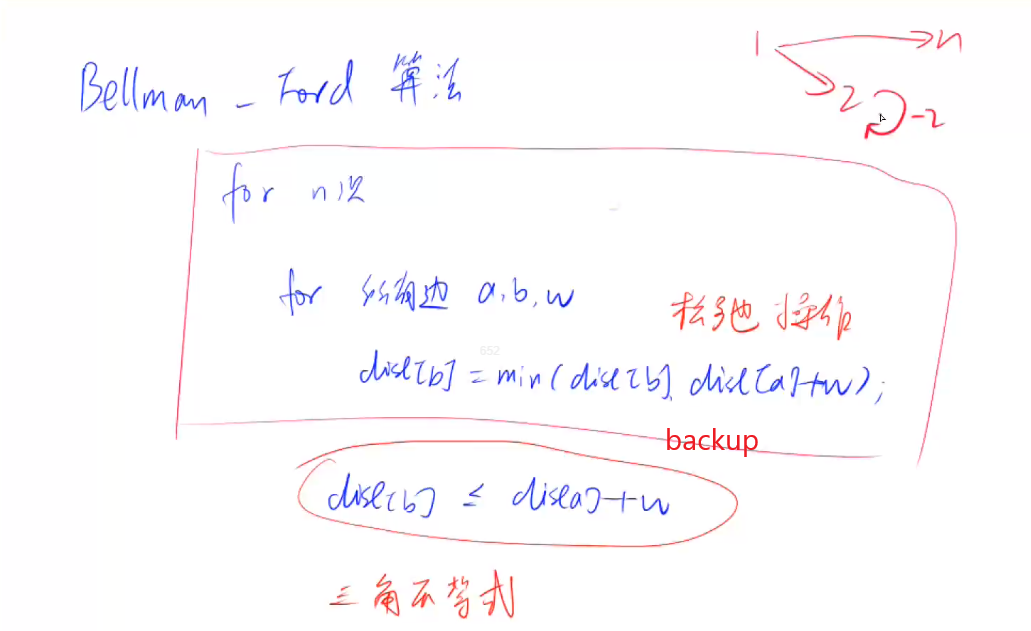 Bellman - Ford 算法
1 n
2 -2
for n次
for 所有边 a,b,w
松弛操作
652
dist[b] = min(dist[b], dist[a]+w);
backup
dist[b] ≤ dist[a]+w
三角不等式